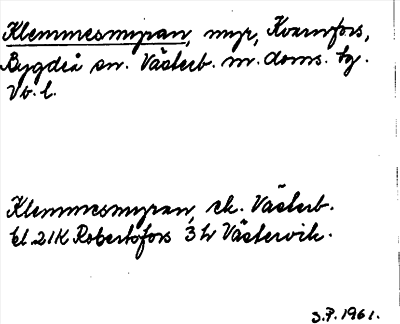 Klemmesmyran, myr, Kvarnfors,
Bygdeå sn. Västerb. m. doms. tg.
Vb. l.
Klemmesmyran, ek. Västerb.
bl 21K Robertsfors 3 h Västervik.
S.P. 1961.